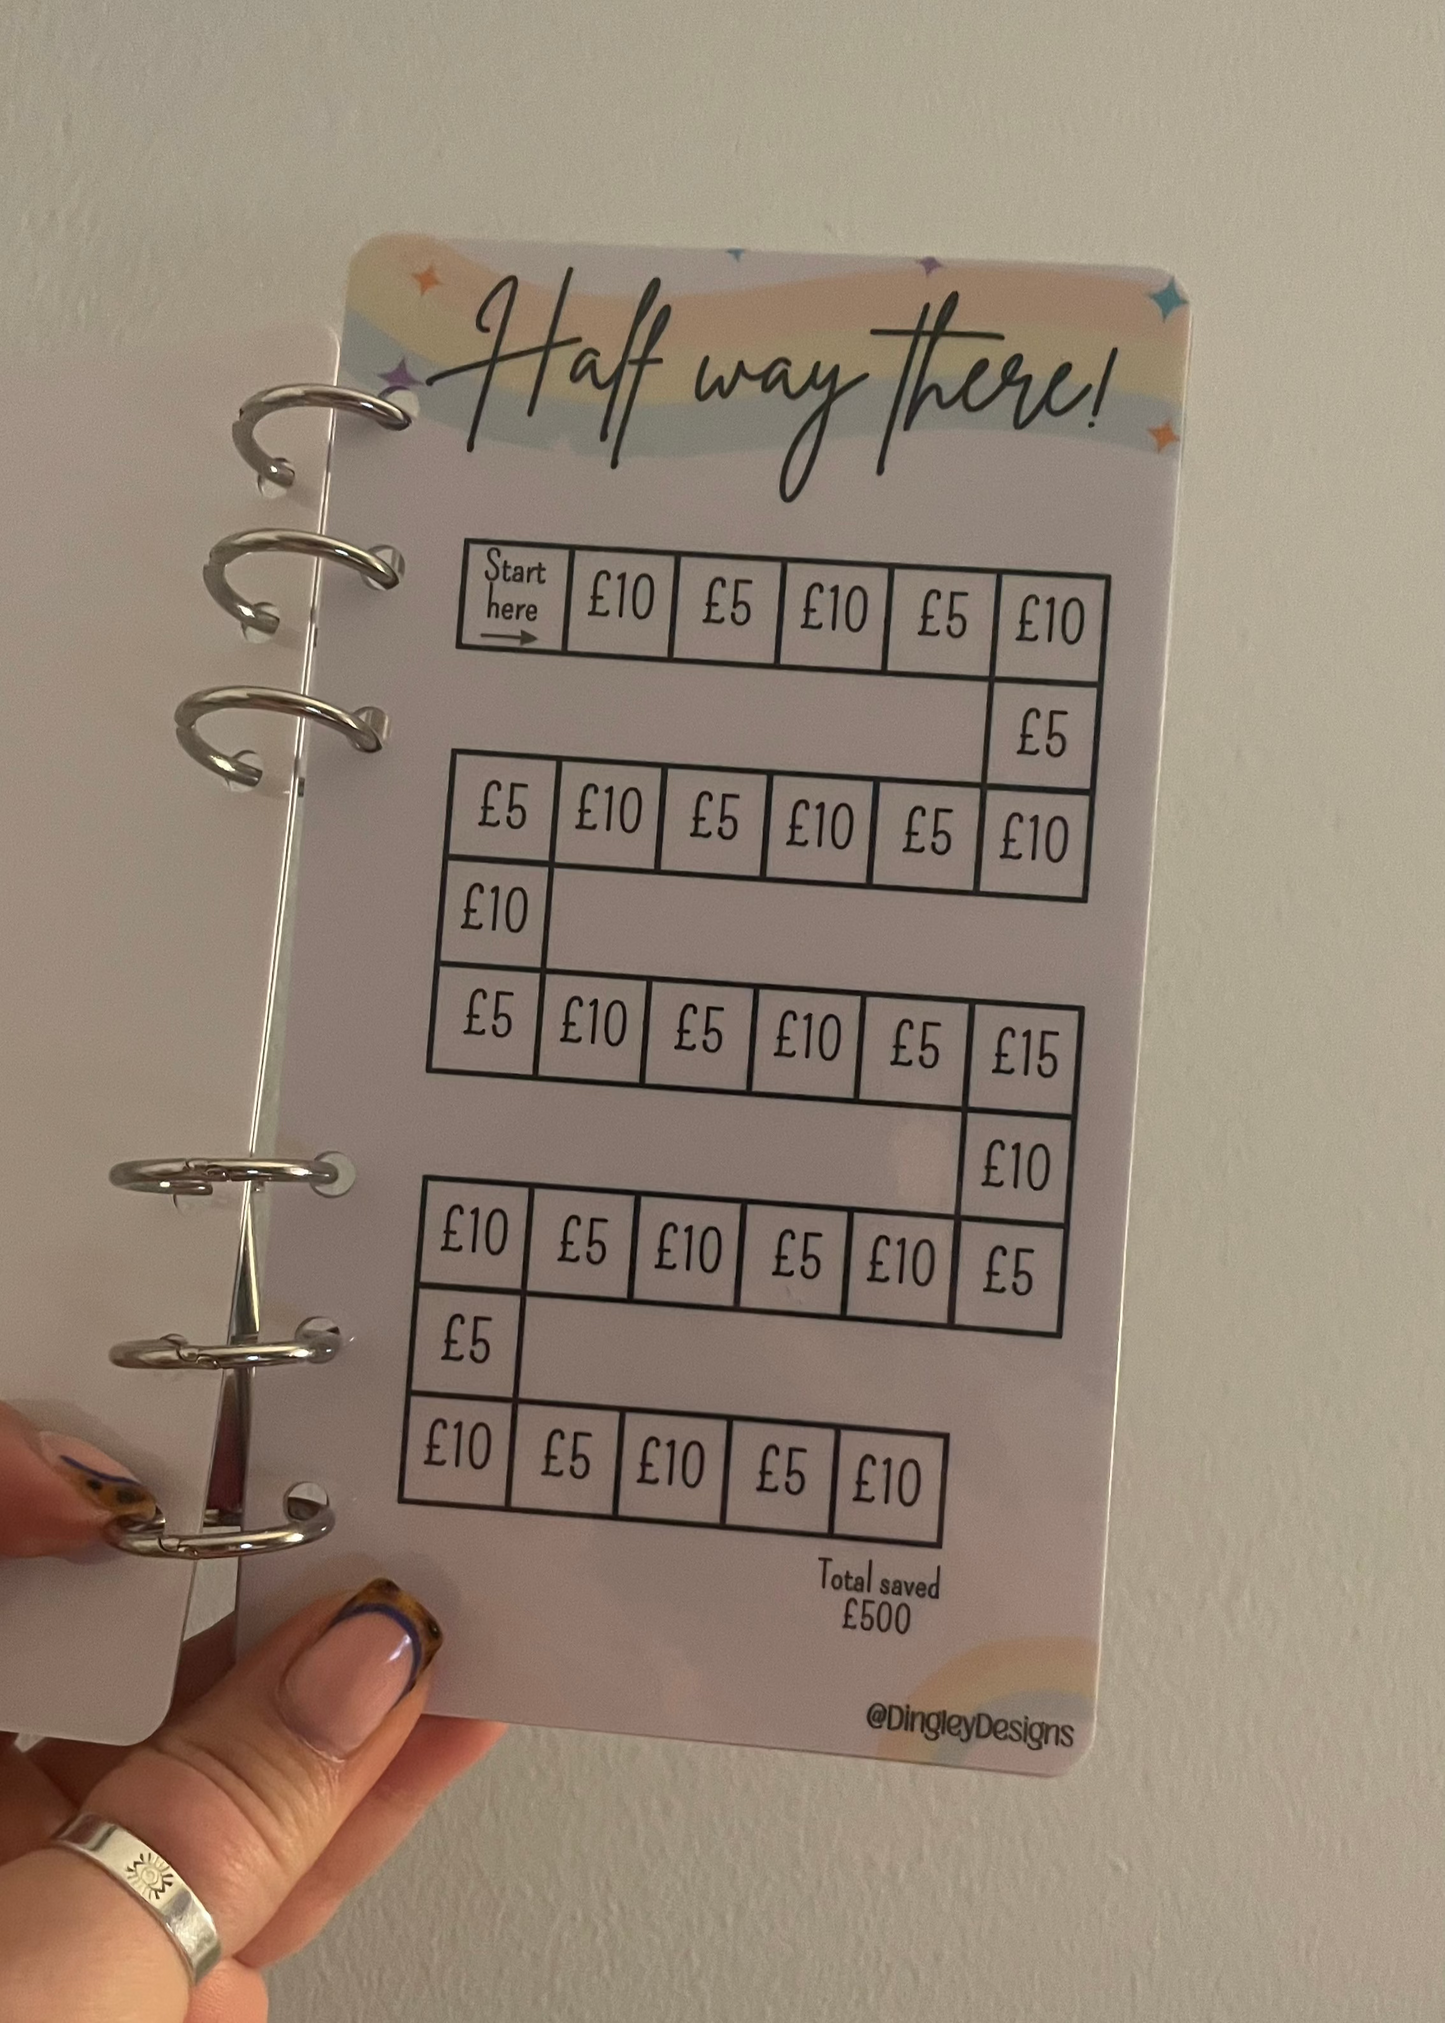 Half way there!
Start
here
£10 £5 £10 £5 £10
£5
£5 £10 £5 £10 £5 £10
£10
£5 £10 £5 £10 £5 £15
£10
£10 £5 £10 £5 £10 £5
£5
£10 £5 £10 £5 £10
Total saved
£500
@DingleyDesigns